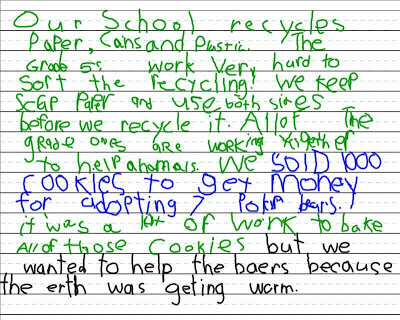 Our School recycles
Paper, Cans and Plastic. The
Grade 5s work Very hard to
Sort the recycling. We keep
Scrap Paper and use both sides
before we recycle it. All of The
grade ones are working together
to help animals. We SOlD 1000
cookies to get money
for adopting 7 Polar bears.
it was a lot of work to bake
All of those Cookies but we
wanted to help the baers because
the erth was geting worm.